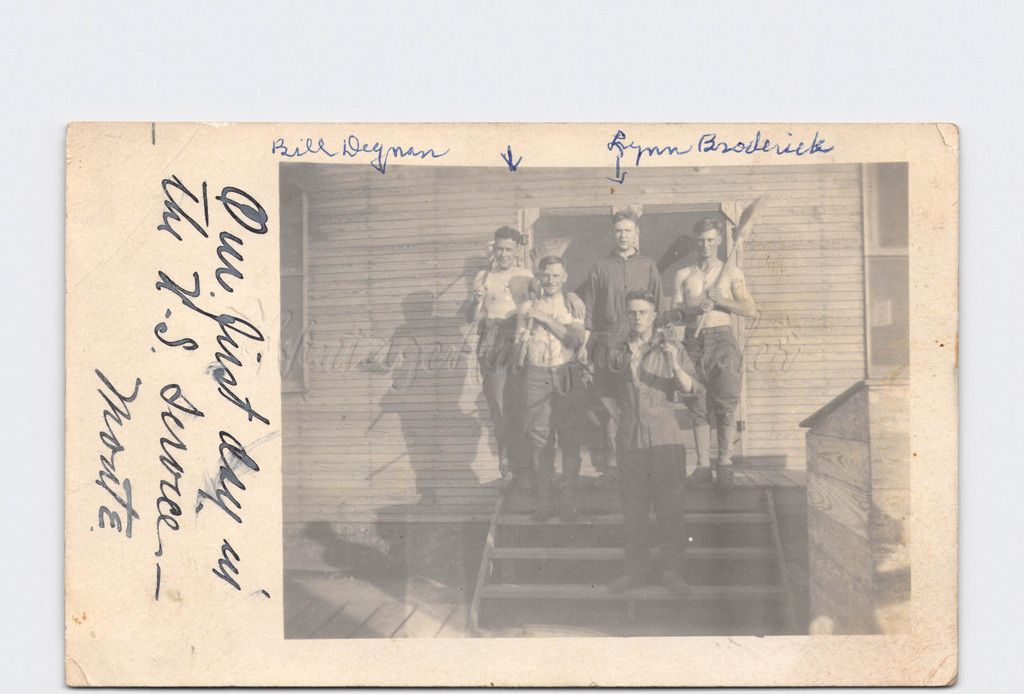 Bill Degnan
Lynn Broderick
Our first day in
the U.S. Service—
Monte